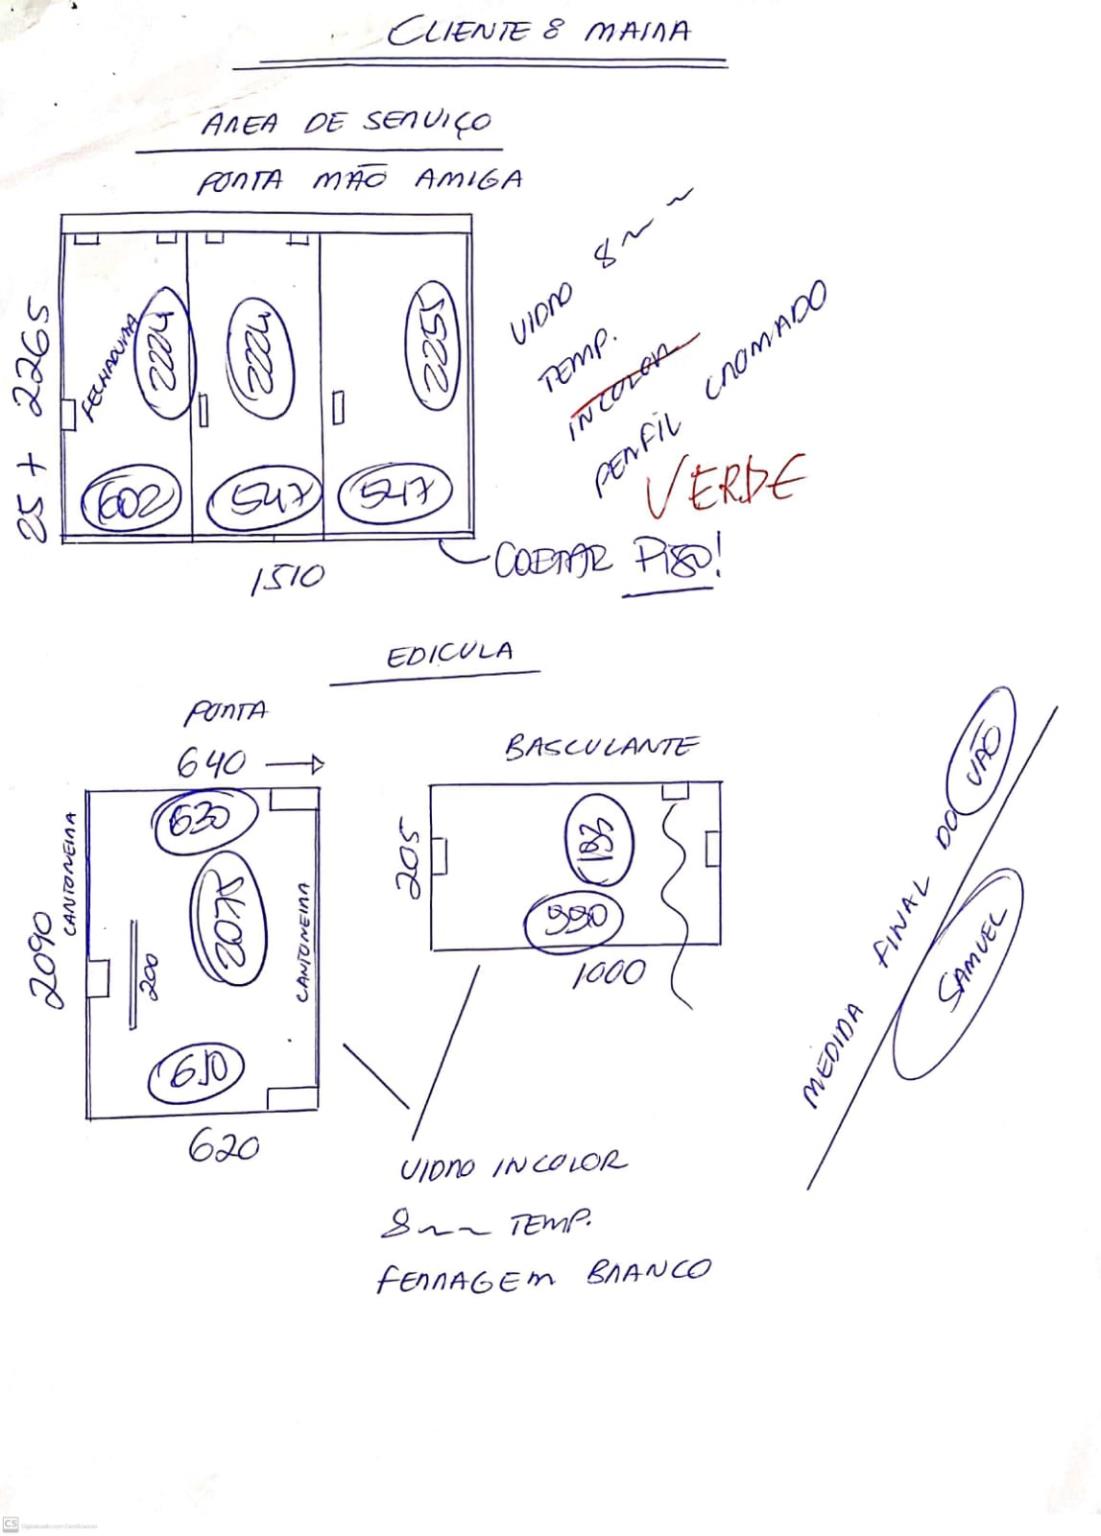 CLIENTE 8 MAIRA
AREA DE SERVIÇO
PORTA MÃO AMIGA
25 + 2265
FECHADURA
2224
2224
2255
602
547
547
1510
VIDRO 8mm
TEMP.
INCOLOR
PERFIL CROMADO
VERDE
COLAR PISO!
EDICULA
PORTA
640 →
630
2090
CANTONEIRA
2075
200
CANTONEIRA
610
620
BASCULANTE
205
990
1000
VIDRO INCOLOR
8mm TEMP.
FERRAGEM BRANCO
MEDIDA FINAL DO VÃO
SAMUEL
CS